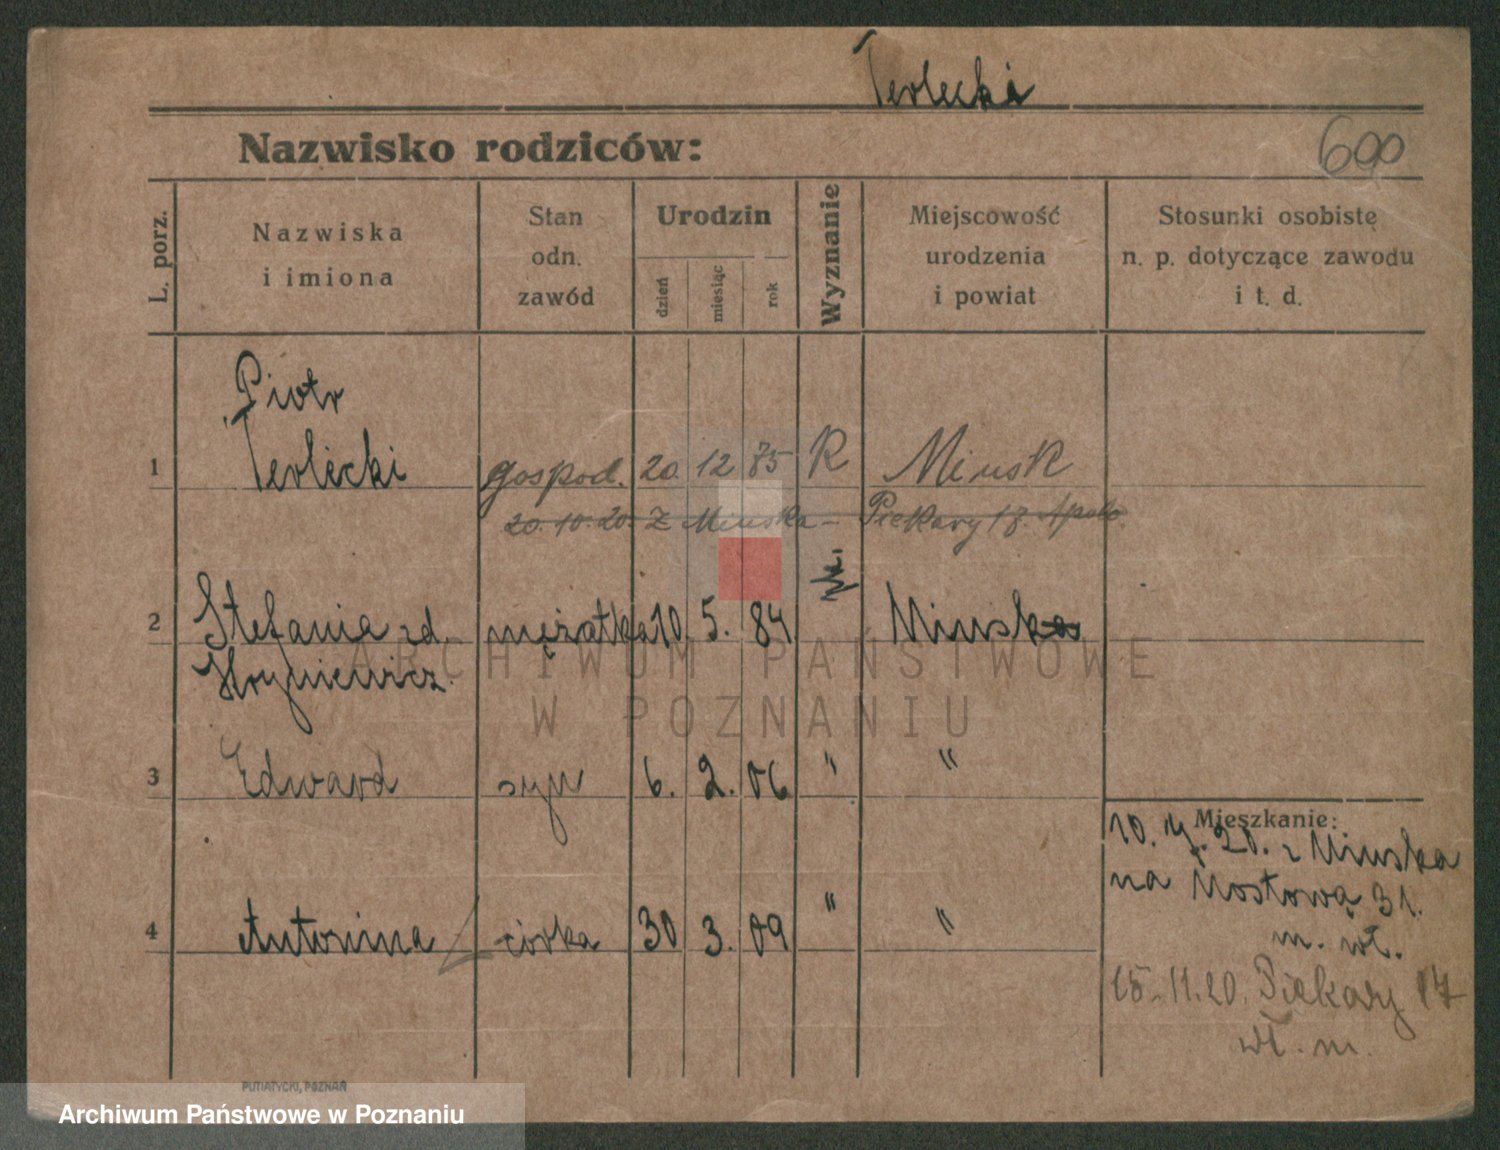 Terlecki
Nazwisko rodziców:
600
L. porz.
Nazwiska
i imiona
Stan
odn.
zawód
Urodzin
dzień
miesiąc
rok
Wyznanie
Miejscowość
urodzenia
i powiat
Stosunki osobiste
n. p. dotyczące zawodu
i t. d.
Piotr
1 Terlecki gospod. 20. 12 75 R Minsk
20. 10. 20. Z Minska – Piekary 17 Apolo.
2 Stefania zd. mężatka 10. 5. 84 rk. Minska
Hryniewicz.
3 Edward syn 6. 2. 06 " "
Mieszkanie:
10. 4. 20. z Minska
na Mostową 31.
4 Antonina córka 30 3. 09 " "
m. wł.
15. 11. 20. Piekary 17
wł. m.
PUTIATYCKI, POZNAŃ
ARCHIWUM PAŃSTWOWE
W POZNANIU
Archiwum Państwowe w Poznaniu